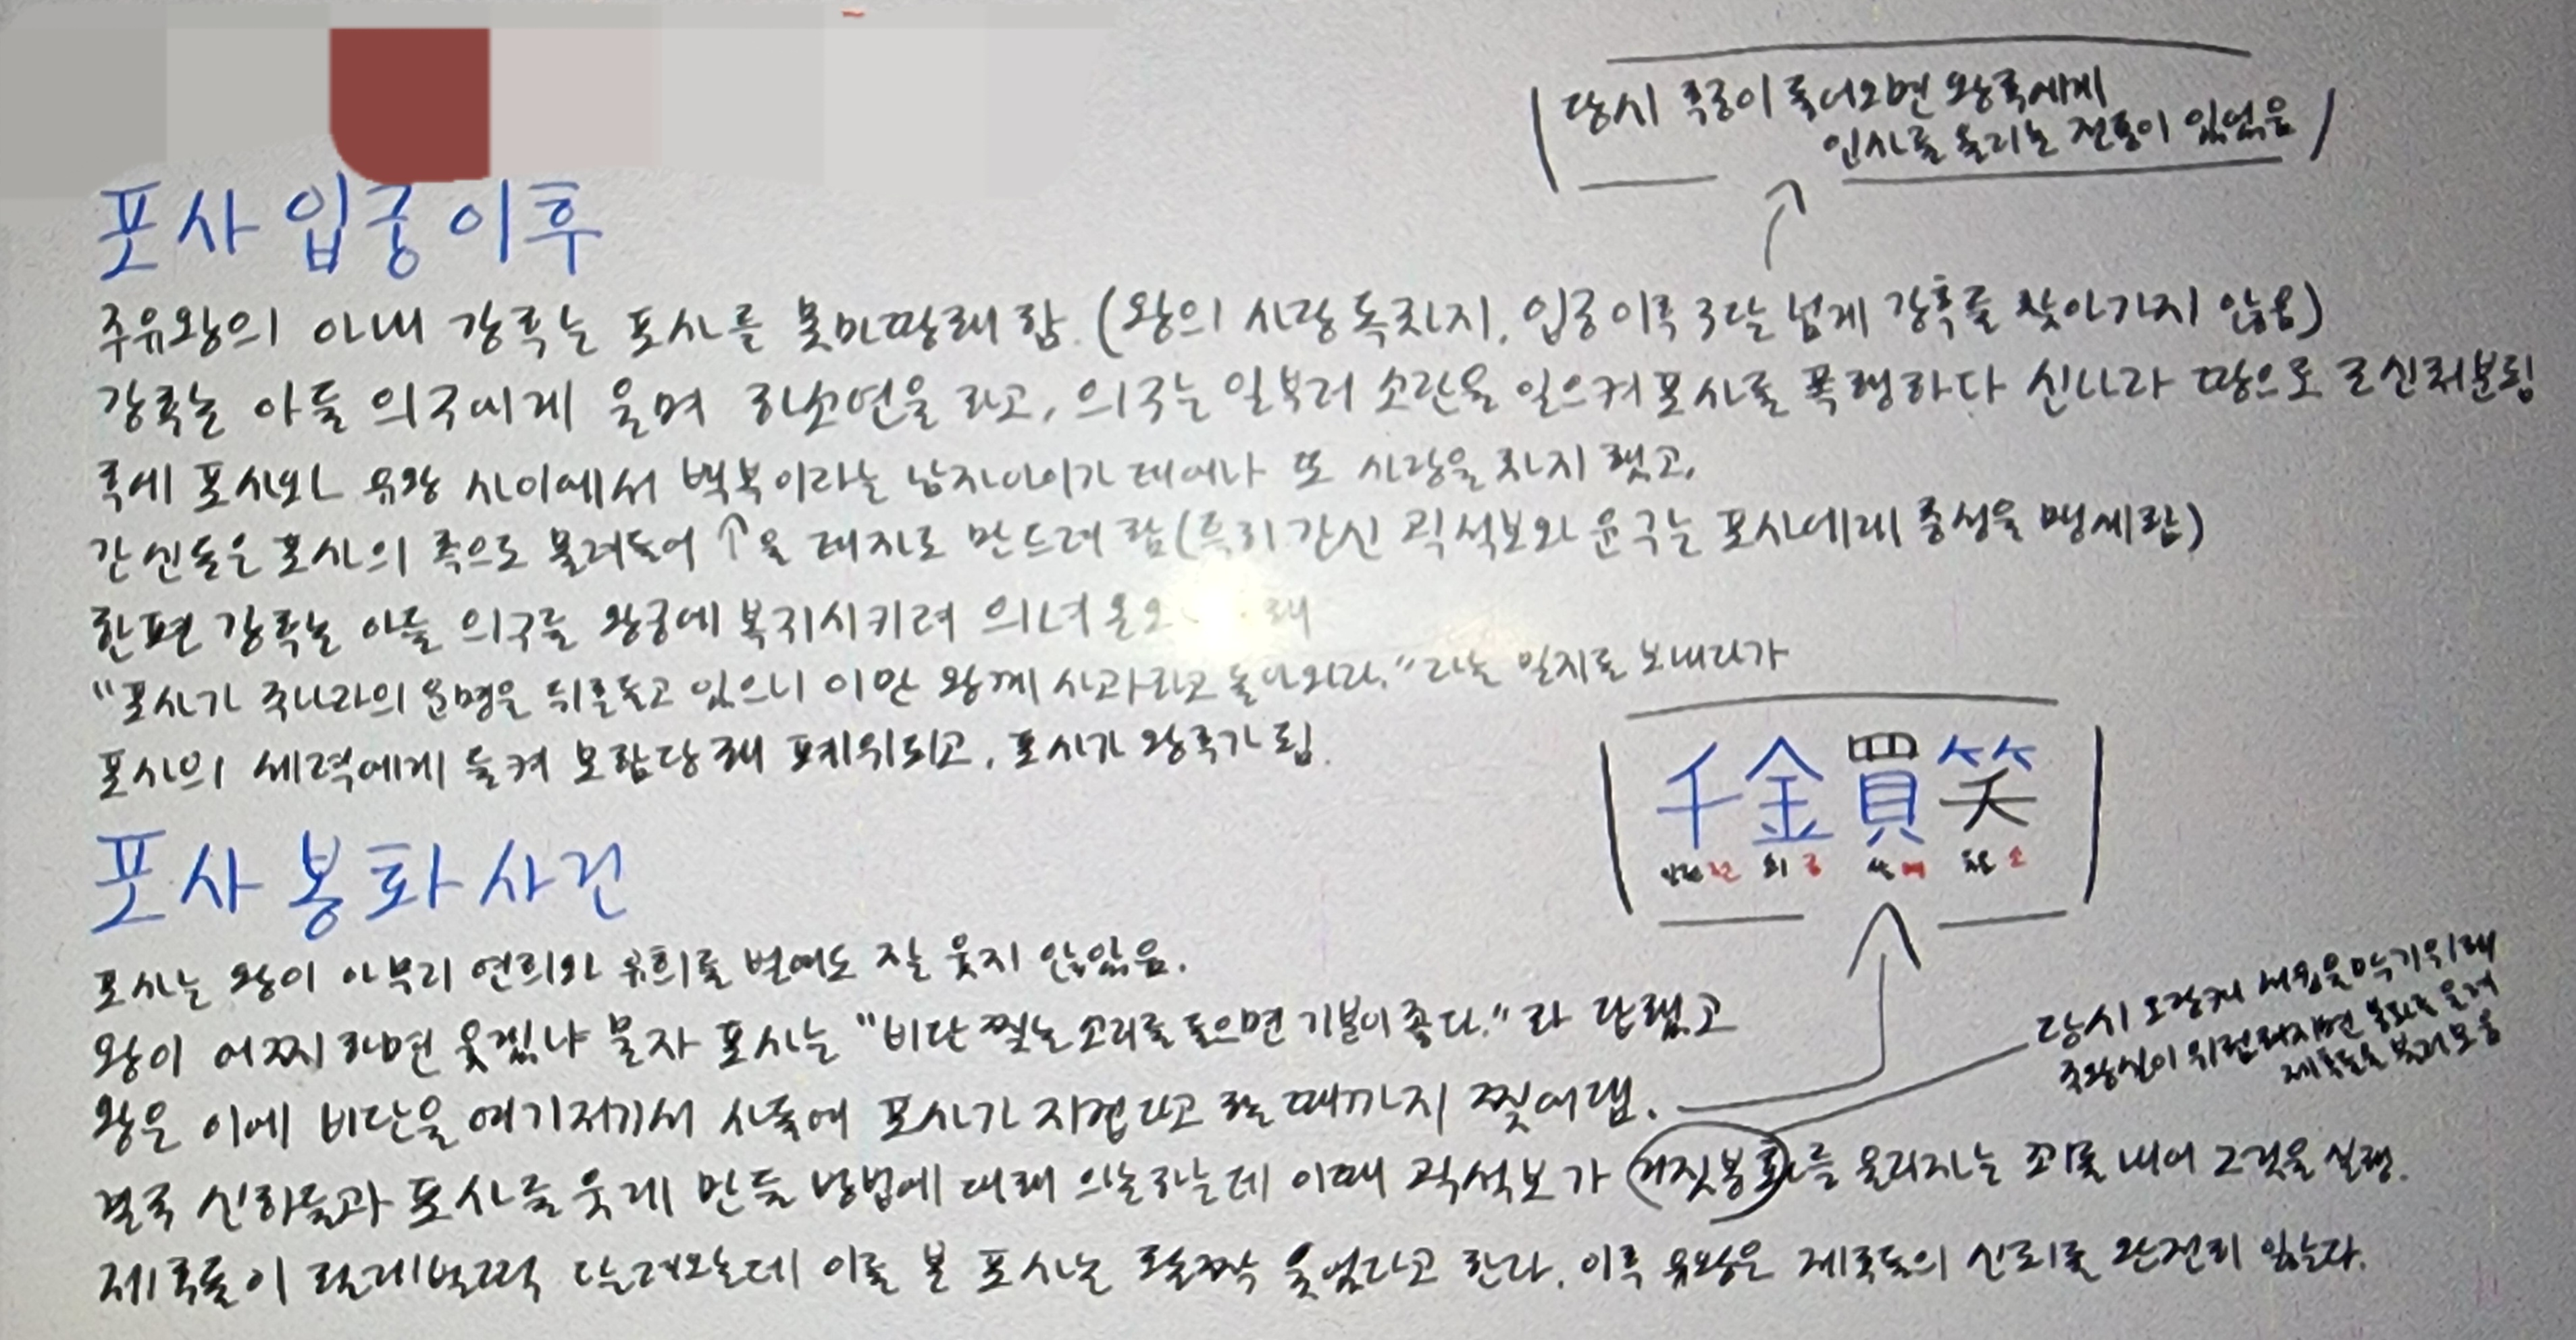 당시 후궁이 들어오면 왕후에게
인사를 올리는 전통이 있었음
포사 입궁 이후
주유왕의 아내 강후는 포사를 못마땅해 함. (왕의 사랑 독차지, 입궁이후 3달 넘게 강후를 찾아가지 않음)
강후는 아들 의구에게 울며 하소연을 하고, 의구는 일부러 소란을 일으켜 포사를 폭행하다 신나라 땅으로 근신처분됨
후에 포사와 유왕 사이에서 백복이라는 남자아이가 태어나 또 사랑을 차지 했고,
간신들은 포사의 쪽으로 몰려들어 ↑을 태자로 만드려 함 (특히 간신 괵석보와 윤구는 포사에게 충성을 맹세함)
한편 강후는 아들 의구를 왕궁에 복귀시키려 의녀 해
"포사가 주나라의 운명을 뒤흔들고 있으니 이만 왕께 사과하고 돌아와라." 라는 밀지를 보내다가
포사의 세력에게 들켜 모함당해 폐위되고, 포사가 왕후가 됨.
千金買笑
천 금 살매 소
포사 봉화 사건
포사는 왕이 아무리 연회와 유희를 벌여도 잘 웃지 않았음.
왕이 어찌하면 웃겠냐 물자 포사는 "비단 찢는 소리를 들으면 기분이 좋다." 라 답했고
당시 오랑캐 세력을 막기위해
주왕실이 위험해지면 봉화를 올려
제후들을 불러모음
왕은 이에 비단을 여기저기서 사들여 포사가 지겹다고 할 때까지 찢어댐.
결국 신하들과 포사를 웃게 만들 방법에 대해 의논하는데 이때 괵석보가 거짓봉화를 올리자는 꾀를 내어 그것을 실행.
제후들이 헐레벌떡 달려오는데 이를 본 포사는 활짝 웃었다고 한다. 이후 유왕은 제후들의 신뢰를 완전히 잃는다.